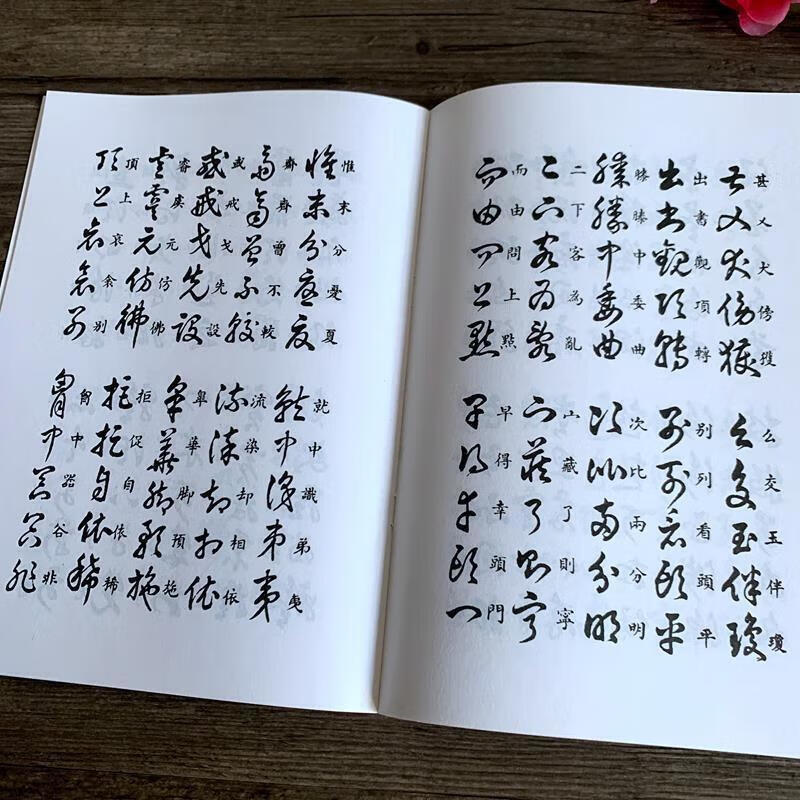 甚乂犬傍獲
么交玉伴瓊
出書觀項轉
別列看頭平
膝滕中委曲
次比兩分明
二下客為亂
宀藏了則寧
而由問上點
早得幸頭門
惟末分憂夏
就中識弟夷
齋齊曾不較
流染却相依
或戒戈先設
皋華脚預施
睿虞元仿佛
拒捉自依稀
頂上哀衾別
胷中器谷非